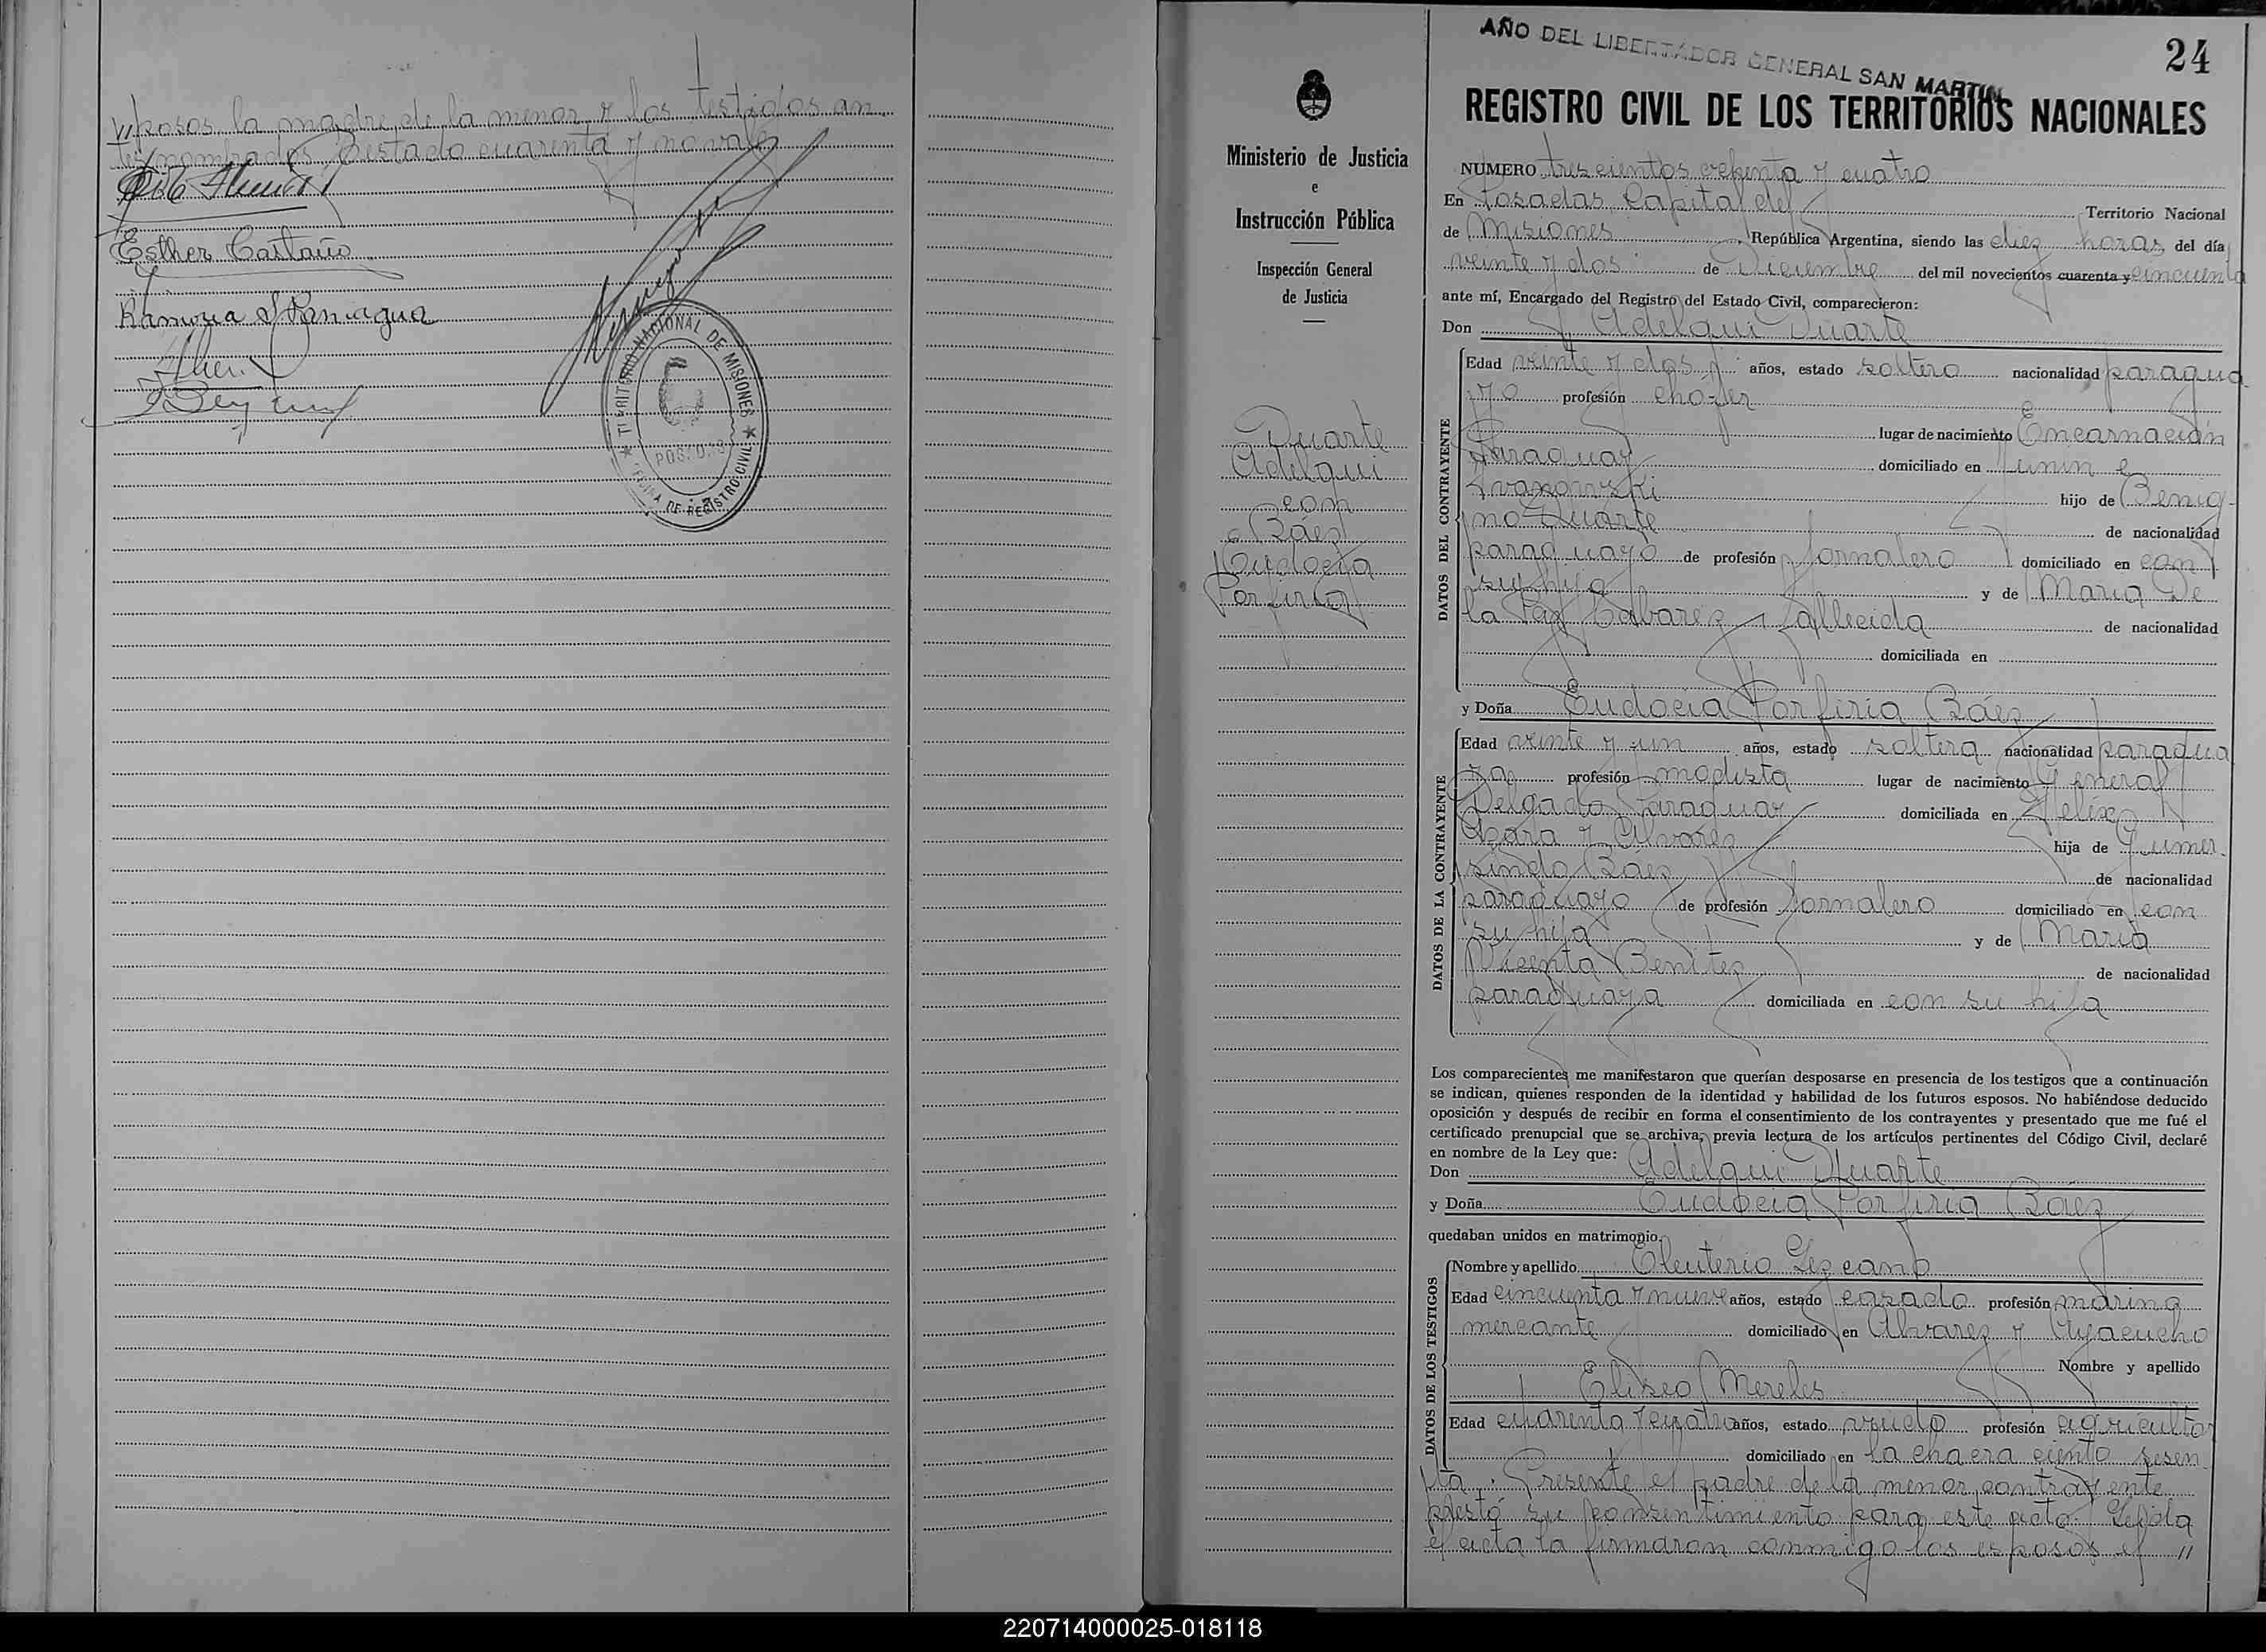 //posos la madre de la menor y los testigos an
tes nombrados. Testado cuarenta y no vale
Esther Castaño
Ramona Paniagua
TERRITORIO NACIONAL DE MISIONES
POSADAS
OFICINA DE REGISTRO CIVIL
Ministerio de Justicia
e
Instrucción Pública
Inspección General
de Justicia
Duarte
Adelqui
con
Báez
Eudocia
Porfiria
AÑO DEL LIBERTADOR GENERAL SAN MARTIN
24
REGISTRO CIVIL DE LOS TERRITORIOS NACIONALES
NÚMERO trescientos ochenta y cuatro
En Posadas Capital del Territorio Nacional
de Misiones, República Argentina, siendo las diez horas del día
veinte y dos de Diciembre del mil novecientos cuarenta y cincuenta
ante mí, Encargado del Registro del Estado Civil, comparecieron:
Don Adelqui Duarte
DATOS DEL CONTRAYENTE
Edad veinte y dos años, estado soltero nacionalidad paragua
yo profesión chofer
lugar de nacimiento Encarnación
Paraguay domiciliado en Junin e
Ivanowski hijo de Benig-
no Duarte de nacionalidad
paraguayo de profesión jornalero domiciliado en con
su hijo y de Maria De
la Paz Cabarez fallecida de nacionalidad
domiciliada en
y Doña Eudocia Porfiria Báez
DATOS DE LA CONTRAYENTE
Edad veinte y un años, estado soltera nacionalidad paragua
ya profesión modista lugar de nacimiento General
Delgado Paraguay domiciliada en Felix
Azara y Alvarez hija de Gumer-
sindo Baez de nacionalidad
paraguayo de profesión jornalero domiciliado en con
su hija y de Maria
Vicenta Benitez de nacionalidad
paraguaya domiciliada en con su hija
Los comparecientes me manifestaron que querían desposarse en presencia de los testigos que a continuación
se indican, quienes responden de la identidad y habilidad de los futuros esposos. No habiéndose deducido
oposición y después de recibir en forma el consentimiento de los contrayentes y presentado que me fué el
certificado prenupcial que se archiva, previa lectura de los artículos pertinentes del Código Civil, declaré
en nombre de la Ley que:
Don Adelqui Duarte
y Doña Eudocia Porfiria Báez
quedaban unidos en matrimonio.
DATOS DE LOS TESTIGOS
Nombre y apellido Eleuterio Lezcano
Edad cincuenta y nueve años, estado casado profesión marina
mercante domiciliado en Alvarez y Ayacucho
Nombre y apellido
Eliseo Mereles
Edad cuarenta y cuatro años, estado viudo profesión agricultor
domiciliado en la chacra ciento sesen
ta. Presente el padre de la menor contrayente
prestó su consentimiento para este acto. Leída
el acta la firmaron conmigo los esposos el //
220714000025-018118